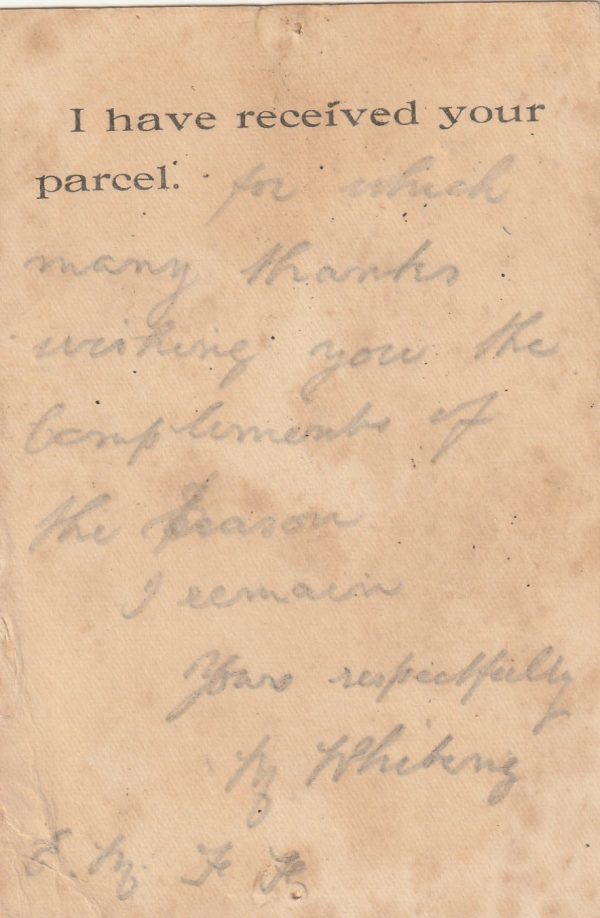 I have received your
parcel. for which
many thanks
wishing you the
Compliments of
the Season
I remain
Yours respectfully
Whiting